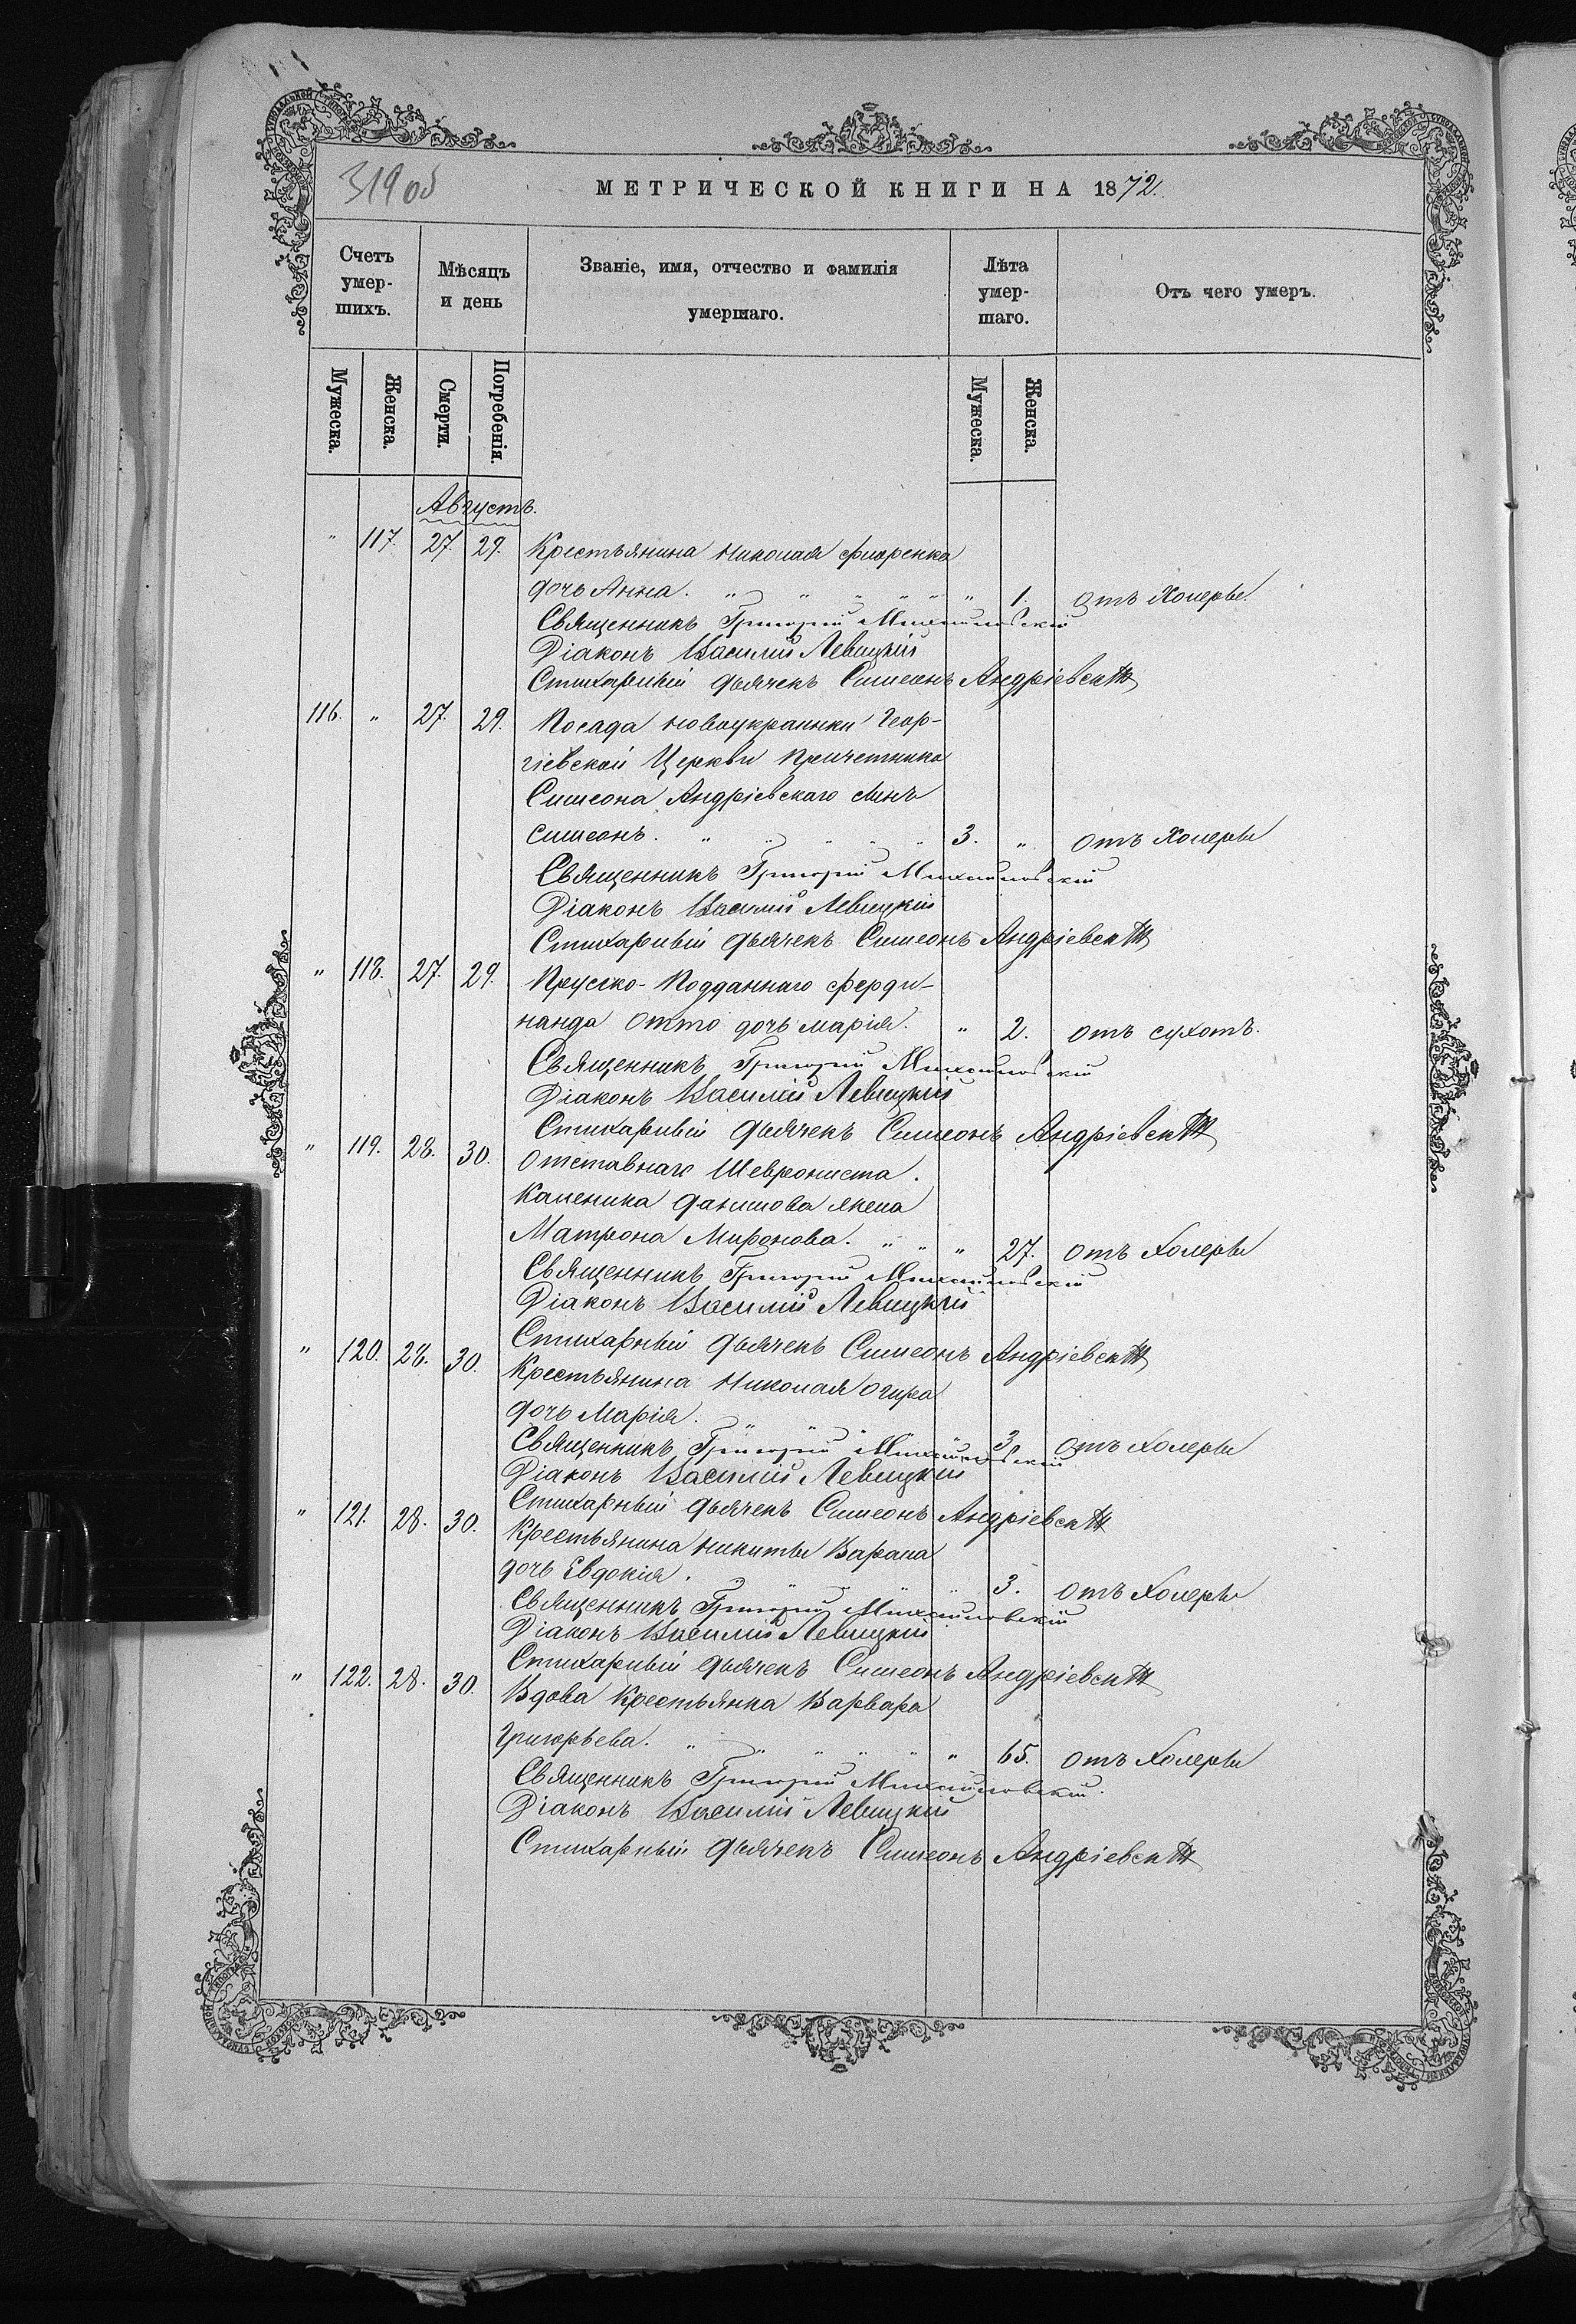 319 об
МЕТРИЧЕСКОЙ КНИГИ НА 1872.
Счетъ умер-шихъ. Мѣсяцъ и день Званіе, имя, отчество и фамилія умершаго. Лѣта умер-шаго. Отъ чего умеръ.
Мужеска. Женска. Смерти. Погребенія. Мужеска. Женска.
Августъ.
" 117. 27. 29. Крестьянина Николая Фиоренка
дочь Анна. " " " " " " 1. отъ Холеры
Священникъ Григорій Михайловскій
Діаконъ Василій Левицкій
Стихарный дьячекъ Симеонъ Андріевскій
116. " 27. 29. Посада Новоукраинки Геор-
гіевской Церкви Причетника
Симеона Андріевскаго сынъ
Симеонъ. " " " " " 3. " отъ Холеры
Священникъ Григорій Михайловскій
Діаконъ Василій Левицкій
Стихарный дьячекъ Симеонъ Андріевскій
" 118. 27. 29. Прусско-Подданнаго Ферди-
нанда Отто дочь Марія. " 2. отъ сухотъ.
Священникъ Григорій Михайловскій
Діаконъ Василій Левицкій
Стихарный дьячекъ Симеонъ Андріевскій
" 119. 28. 30. Отставнаго Шеврониста.
Каленика Данилова жена
Матрона Миронова. " " " 27. отъ Холеры
Священникъ Григорій Михайловскій
Діаконъ Василій Левицкій
Стихарный дьячекъ Симеонъ Андріевскій
" 120. 28. 30. Крестьянина Николая Огира
дочь Марія. " " " 3. отъ Холеры
Священникъ Григорій Михайловскій
Діаконъ Василій Левицкій
Стихарный дьячекъ Симеонъ Андріевскій
" 121. 28. 30. Крестьянина Никиты Варана
дочь Евдокія. " " " " " 3. отъ Холеры
Священникъ Григорій Михайловскій
Діаконъ Василій Левицкій
Стихарный дьячекъ Симеонъ Андріевскій
" 122. 28. 30. Вдова Крестьянка Варвара
Григорьева. " " " " " " 65. отъ Холеры
Священникъ Григорій Михайловскій.
Діаконъ Василій Левицкій
Стихарный дьячекъ Симеонъ Андріевскій